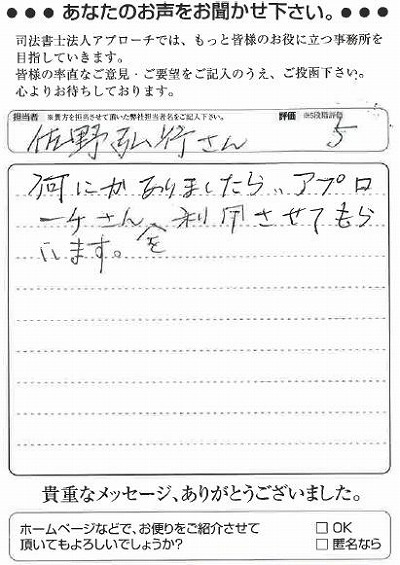 ●●● あなたのお声をお聞かせ下さい。●●●
司法書士法人アプローチでは、もっと皆様のお役に立つ事務所を
目指していきます。
皆様の率直なご意見・ご要望をご記入のうえ、ご投函下さい。
心よりお待ちしております。
担当者 ※貴方を担当させて頂いた弊社担当者名をご記入下さい。 評価 ※5段階評価
佐野弘将さん 5
何にかありましたら、アプロ
ーチさんを利用させてもら
います。
貴重なメッセージ、ありがとうございました。
ホームページなどで、お便りをご紹介させて □ OK
頂いてもよろしいでしょうか? □ 匿名なら